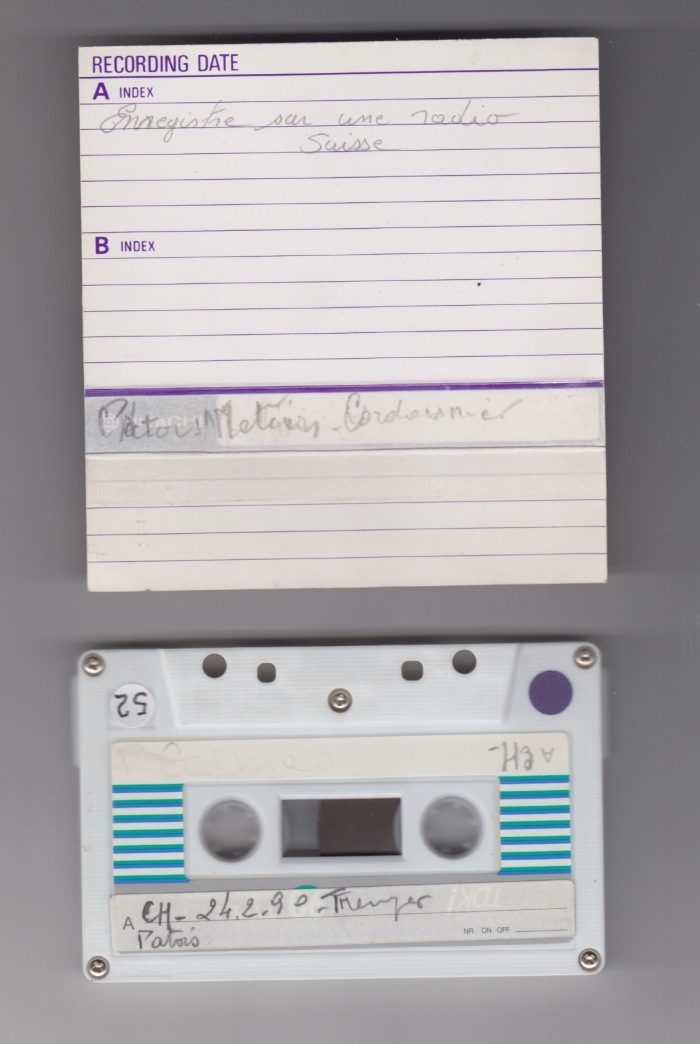 RECORDING DATE
A INDEX
Enregistre sur une radio
Suisse
B INDEX
Patois Métiers - Cordonnier
52
A CH-
A CH- 24.2.90 -
Patois
NR ON OFF
TDK